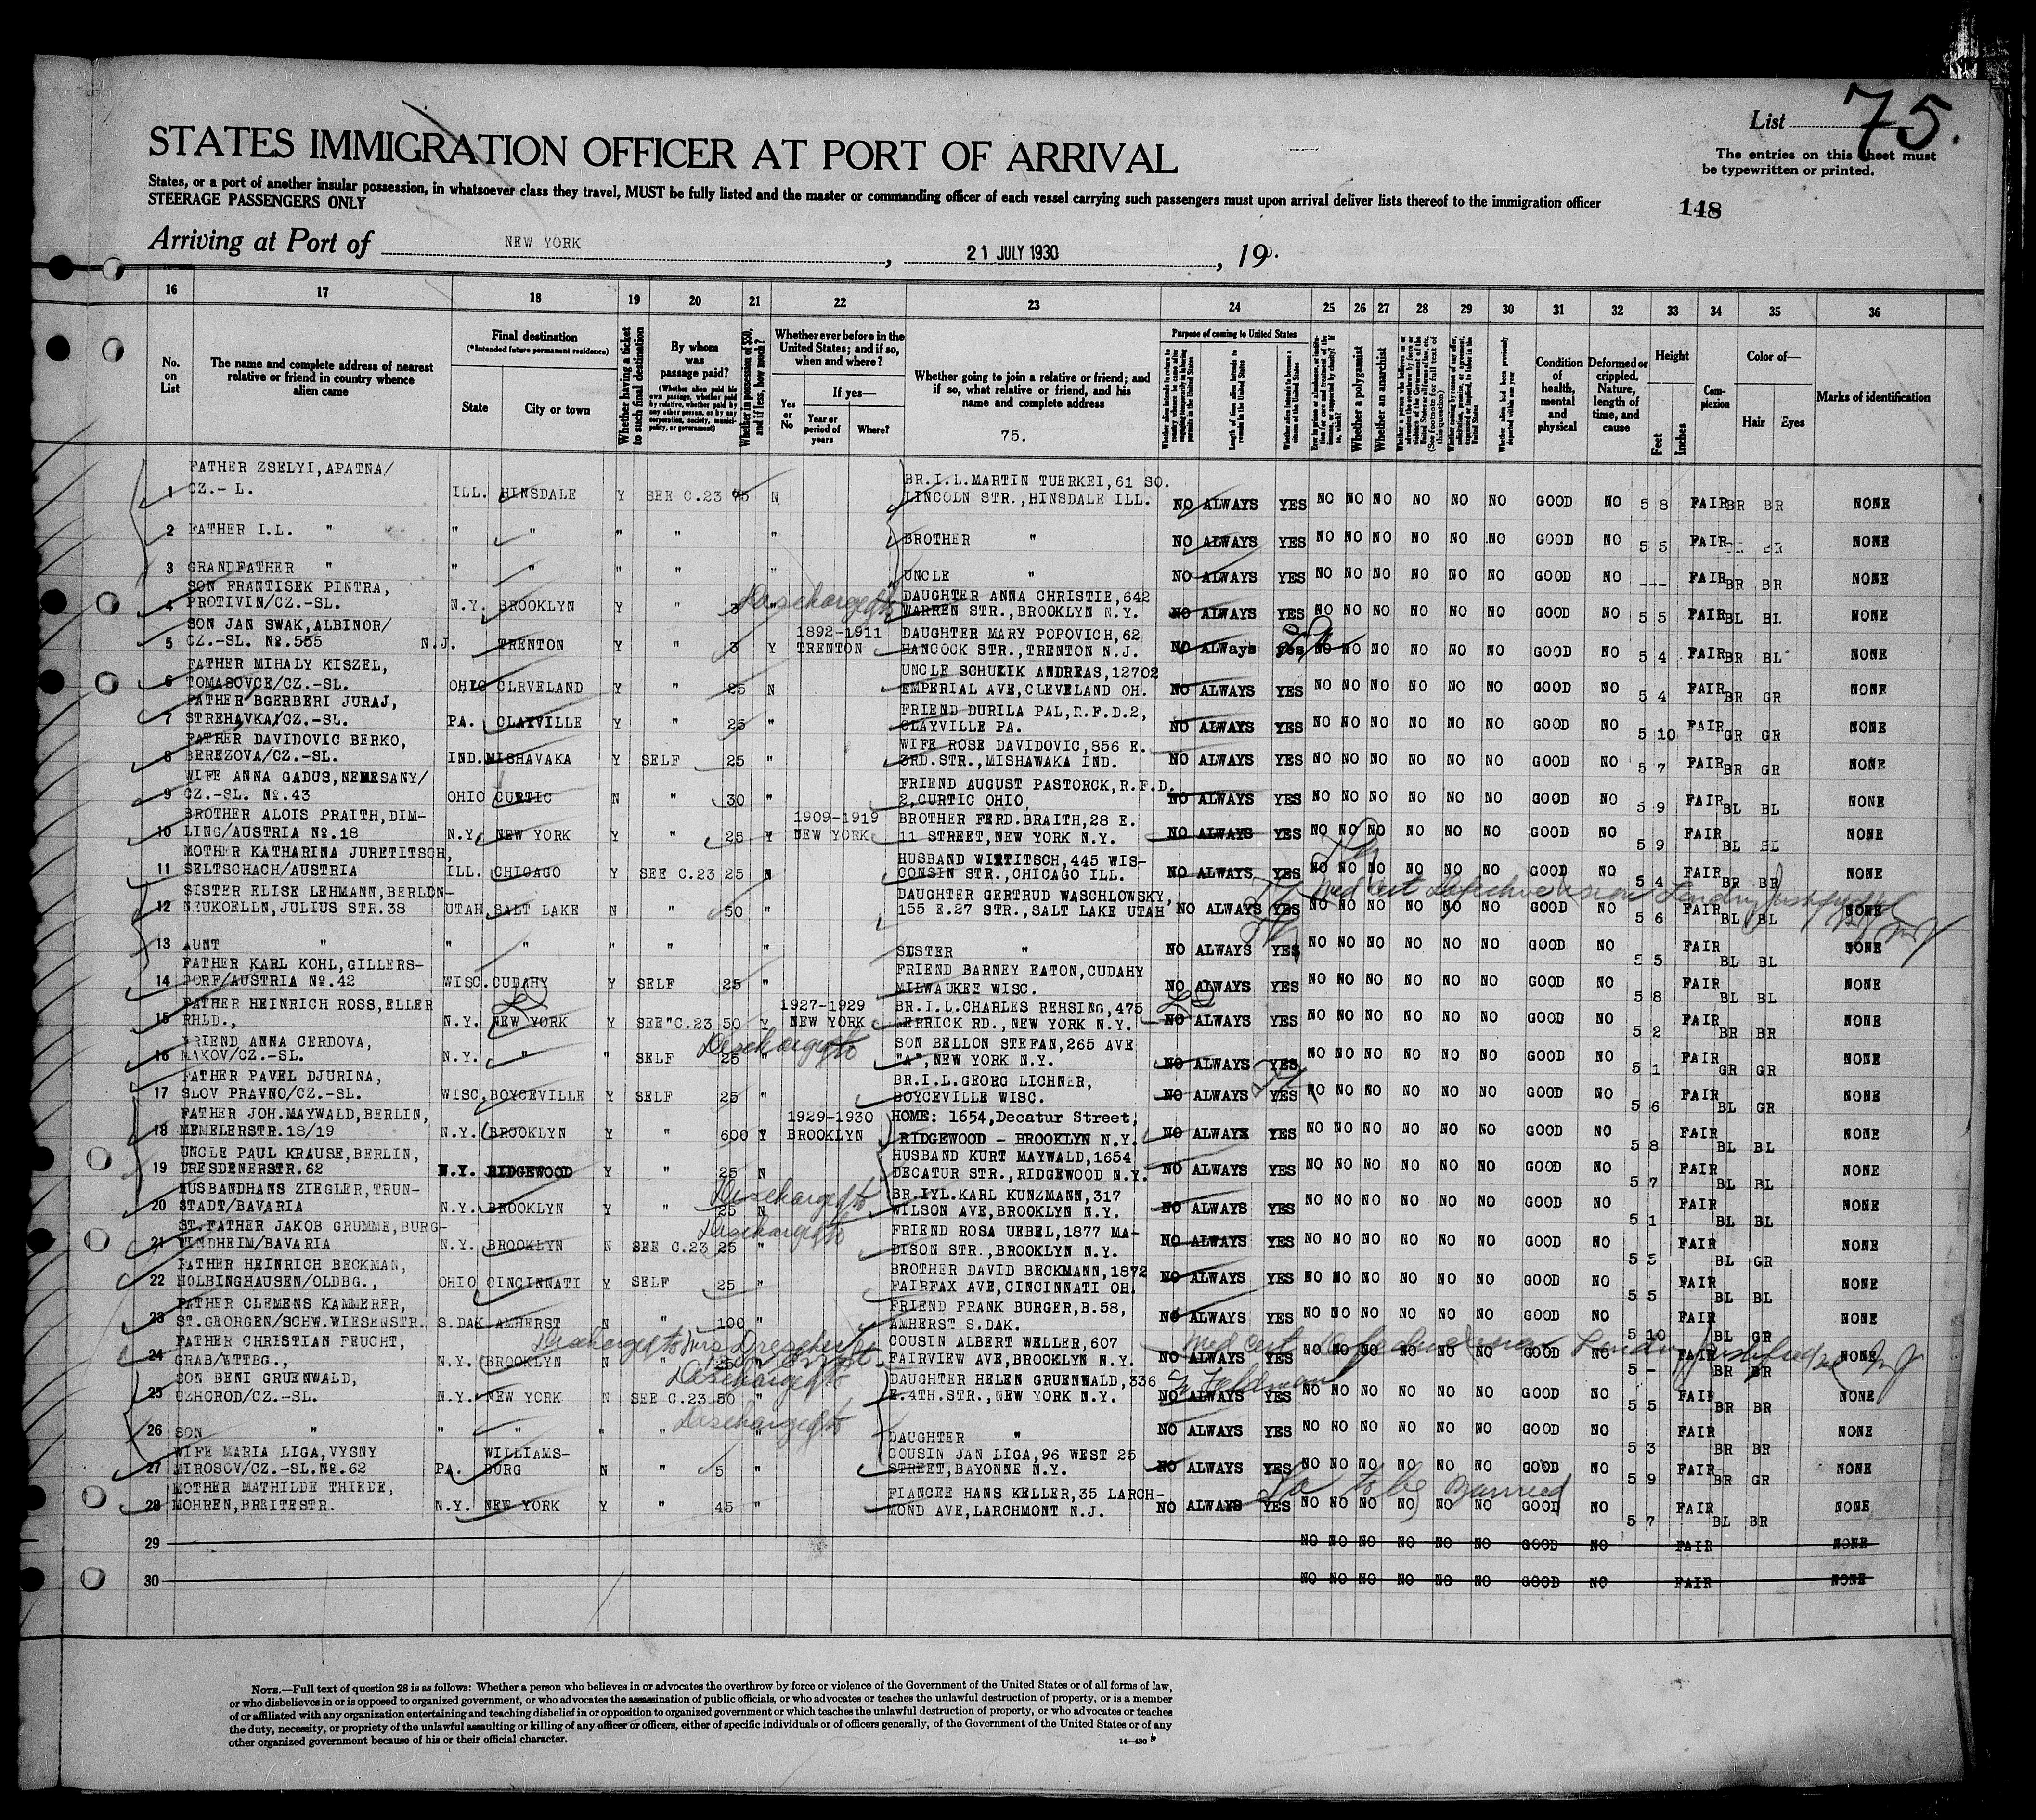 List 75.
The entries on this sheet must
be typewritten or printed.
148
STATES IMMIGRATION OFFICER AT PORT OF ARRIVAL
States, or a port of another insular possession, in whatsoever class they travel, MUST be fully listed and the master or commanding officer of each vessel carrying such passengers must upon arrival deliver lists thereof to the immigration officer
STEERAGE PASSENGERS ONLY
Arriving at Port of NEW YORK, 21 JULY 1930, 19
16 17 18 19 20 21 22 23 24 25 26 27 28 29 30 31 32 33 34 35 36
No. on List
The name and complete address of nearest relative or friend in country whence alien came
Final destination
(*Intended future permanent residence)
State
City or town
Whether having a ticket to such final destination
By whom was passage paid?
(Whether alien paid his own passage, whether paid by relative, whether paid by any other person, or by any corporation, society, municipality, or government)
Whether in possession of $50, and if less, how much?
Whether ever before in the United States; and if so, when and where?
Yes or No
If yes—
Year or period of years
Where?
Whether going to join a relative or friend; and if so, what relative or friend, and his name and complete address
75.
Purpose of coming to United States
Whether a polygamist
Whether an anarchist
Condition of health, mental and physical
Deformed or crippled. Nature, length of time, and cause
Height
Feet
Inches
Complexion
Color of—
Hair Eyes
Marks of identification
FATHER ZSELYI, APATNA/ BR.I.L.MARTIN TUERKEI, 61 SO.
1 CZ.- L. ILL. HINSDALE Y SEE C.23 N LINCOLN STR., HINSDALE ILL. NO ALWAYS YES NO NO NO NO NO NO GOOD NO 5 8 FAIR BR BR NONE
2 FATHER I.L. " " " " " " BROTHER " NO ALWAYS YES NO NO NO NO NO NO GOOD NO 5 5 FAIR NONE
3 GRANDFATHER " " " " " " UNCLE " NO ALWAYS YES NO NO NO NO NO NO GOOD NO --- FAIR BR BR NONE
SON FRANTISEK PINTRA, Discharged to DAUGHTER ANNA CHRISTIE, 642
4 PROTIVIN/CZ.-SL. N.Y. BROOKLYN Y " 3 WARREN STR., BROOKLYN N.Y. NO ALWAYS YES NO NO NO NO NO NO GOOD NO 5 5 FAIR BL BL NONE
SON JAN SWAK, ALBINOR/ 1892-1911 DAUGHTER MARY POPOVICH, 62
5 CZ.-SL. No. 555 N.J. TRENTON Y " 3 Y TRENTON HANCOCK STR., TRENTON N.J. NO ALWays yes NO NO NO NO NO NO GOOD NO 5 4 FAIR BR BL NONE
FATHER MIHALY KISZEL, UNCLE SCHUKIK ANDREAS, 12702
6 TOMASOVCE/CZ.-SL. OHIO CLEVELAND Y " 25 N EMPERIAL AVE, CLEVELAND OH. NO ALWAYS YES NO NO NO NO NO NO GOOD NO 5 4 FAIR BR GR NONE
FATHER BGERBERI JURAJ, FRIEND DURILA PAL, R.F.D.2,
7 STREHAVKA/CZ.-SL. PA. CLAYVILLE Y " 25 " CLAYVILLE PA. NO ALWAYS YES NO NO NO NO NO NO GOOD NO 5 10 FAIR GR GR NONE
FATHER DAVIDOVIC BERKO, WIFE ROSE DAVIDOVIC, 856 E.
8 BEREZOVA/CZ.-SL. IND. MISHAVAKA Y SELF 25 " 3RD.STR., MISHAWAKA IND. NO ALWAYS YES NO NO NO NO NO NO GOOD NO 5 7 FAIR BR GR NONE
WIFE ANNA GADUS, NEMESANY/ FRIEND AUGUST PASTORCK, R.F.D.
9 CZ.-SL. No.43 OHIO CURTIC N " 30 " 2, CURTIC OHIO NO ALWAYS YES NO NO NO NO NO NO GOOD NO 5 9 FAIR BL BL NONE
BROTHER ALOIS PRAITH, DIM- 1909-1919 BROTHER FERD.BRAITH, 28 E.
10 LING/AUSTRIA No.18 N.Y. NEW YORK Y " 25 Y NEW YORK 11 STREET, NEW YORK N.Y. NO ALWAYS YES NO NO NO NO NO NO GOOD NO 5 9 FAIR BL BL NONE
MOTHER KATHARINA JURETITSCH, HUSBAND WIRTITSCH, 445 WIS-
11 SELTSCHACH/AUSTRIA ILL. CHICAGO Y SEE C.23 25 N CONSIN STR., CHICAGO ILL. NO ALWAYS YES NO NO NO NO NO NO GOOD NO 5 4 FAIR BR BR NONE
SISTER ELISE LEHMANN, BERLIN- DAUGHTER GERTRUD WASCHLOWSKY, Med Cert Defective vision Landing justified
12 NEUKOELLN, JULIUS STR.38 UTAH SALT LAKE N " 50 " 155 E.27 STR., SALT LAKE UTAH NO ALWAYS YES NO NO NO NO NO NO GOOD NO 5 6 FAIR BL BL NONE
13 AUNT " " " " " " SISTER " NO ALWAYS YES NO NO NO NO NO NO GOOD NO 5 5 FAIR BL BL NONE
FATHER KARL KOHL, GILLERS- FRIEND BARNEY EATON, CUDAHY
14 DORF/AUSTRIA No.42 WISC. CUDAHY Y SELF 25 " MILWAUKEE WISC. NO ALWAYS YES NO NO NO NO NO NO GOOD NO 5 8 FAIR BL BL NONE
FATHER HEINRICH ROSS, ELLER 1927-1929 BR.I.L.CHARLES REHSING, 475
15 RHLD., N.Y. NEW YORK Y SEE C.23 50 Y NEW YORK ERRICK RD., NEW YORK N.Y. NO ALWAYS YES NO NO NO NO NO NO GOOD NO 5 2 FAIR BR BR NONE
FRIEND ANNA CERDOVA, Discharged to SON BELLON STEFAN, 265 AVE
16 MAKOV/CZ.-SL. N.Y. " " SELF 25 " "A", NEW YORK N.Y. NO ALWAYS YES NO NO NO NO NO NO GOOD NO 5 1 FAIR GR GR NONE
FATHER PAVEL DJURINA, BR.I.L.GEORG LICHNER,
17 SLOV PRAVNO/CZ.-SL. WISC. BOYCEVILLE Y SELF 25 " BOYCEVILLE WISC. NO ALWAYS YES NO NO NO NO NO NO GOOD NO 5 6 FAIR BL GR NONE
FATHER JOH.MAYWALD, BERLIN, 1929-1930 HOME: 1654, Decatur Street,
18 MEMELERSTR.18/19 N.Y. BROOKLYN Y " 600 Y BROOKLYN RIDGEWOOD - BROOKLYN N.Y. NO ALWAYS YES NO NO NO NO NO NO GOOD NO 5 8 FAIR BL BL NONE
UNCLE PAUL KRAUSE, BERLIN, HUSBAND KURT MAYWALD, 1654
19 DRESDENERSTR.62 N.Y. RIDGEWOOD Y " 25 N DECATUR STR., RIDGEWOOD N.Y. NO ALWAYS YES NO NO NO NO NO NO GOOD NO 5 7 FAIR BL BL NONE
HUSBANDHANS ZIEGLER, TRUN- Discharged to BR.IYL.KARL KUNZMANN, 317
20 STADT/BAVARIA N.Y. BROOKLYN Y " 25 N WILSON AVE, BROOKLYN N.Y. NO ALWAYS YES NO NO NO NO NO NO GOOD NO 5 1 FAIR BL BL NONE
ST.FATHER JAKOB GRUMME, BURG- Discharged to FRIEND ROSA UEBEL, 1877 MA-
21 WINDHEIM/BAVARIA N.Y. BROOKLYN N SEE C.23 25 " DISON STR., BROOKLYN N.Y. NO ALWAYS YES NO NO NO NO NO NO GOOD NO 5 5 FAIR BL GR NONE
FATHER HEINRICH BECKMAN, BROTHER DAVID BECKMANN, 1872
22 HOLBINGHAUSEN/OLDBG., OHIO CINCINNATI Y SELF 25 " FAIRFAX AVE, CINCINNATI OH. NO ALWAYS YES NO NO NO NO NO NO GOOD NO 5 5 FAIR BL BL NONE
FATHER CLEMENS KAMMERER, FRIEND FRANK BURGER, B.58,
23 ST.GEORGEN/SCHW.WIESENSTR. S.DAK. AMHERST N " 100 " AMHERST S.DAK. NO ALWAYS YES NO NO NO NO NO NO GOOD NO 5 10 FAIR BL GR NONE
FATHER CHRISTIAN FEUCHT, Discharged to Mrs Drescher COUSIN ALBERT WELLER, 607 Med Cert Defective vision Landing justified
24 GRAB/WTTBG., N.Y. BROOKLYN N " 25 FAIRVIEW AVE, BROOKLYN N.Y. NO ALWAYS YES NO NO NO NO NO NO GOOD NO 5 - FAIR BR BR NONE
SON BENI GRUENWALD, Discharged to DAUGHTER HELEN GRUENWALD, 336 Feldman
25 UZHOROD/CZ.-SL. N.Y. NEW YORK N SEE C.23 50 " E.4TH.STR., NEW YORK N.Y. NO ALWAYS YES NO NO NO NO NO NO GOOD NO 5 5 FAIR BR BR NONE
26 SON " " " " " Discharged to " DAUGHTER " NO ALWAYS YES NO NO NO NO NO NO GOOD NO 5 3 FAIR BR BR NONE
WIFE MARIA LIGA, VYSNY WILLIAMS- COUSIN JAN LIGA, 96 WEST 25
27 MIROSOV/CZ.-SL.No.62 PA. BURG N " 5 " STREET, BAYONNE N.Y. NO ALWAYS YES NO NO NO NO NO NO GOOD NO 5 9 FAIR BR GR NONE
MOTHER MATHILDE THIEDE, FIANCEE HANS KELLER, 35 LARCH- to be married
28 MOHREN, BREITESTR. N.Y. NEW YORK Y " 45 " MOND AVE, LARCHMONT N.J. NO ALWAYS YES NO NO NO NO NO NO GOOD NO 5 7 FAIR BL BR NONE
29 NO NO NO NO NO NO GOOD NO FAIR NONE
30 NO NO NO NO NO NO GOOD NO FAIR NONE
NOTE.—Full text of question 28 is as follows: Whether a person who believes in or advocates the overthrow by force or violence of the Government of the United States or of all forms of law,
or who disbelieves in or is opposed to organized government, or who advocates the assassination of public officials, or who advocates or teaches the unlawful destruction of property, or is a member
of or affiliated with any organization entertaining and teaching disbelief in or opposition to organized government or which teaches the unlawful destruction of property, or who advocates or teaches
the duty, necessity, or propriety of the unlawful assaulting or killing of any officer or officers, either of specific individuals or of officers generally, of the Government of the United States or of any
other organized government because of his or their official character.
14—430